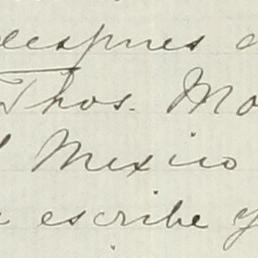 despues
Thos. Mo
Mexico
escribe y